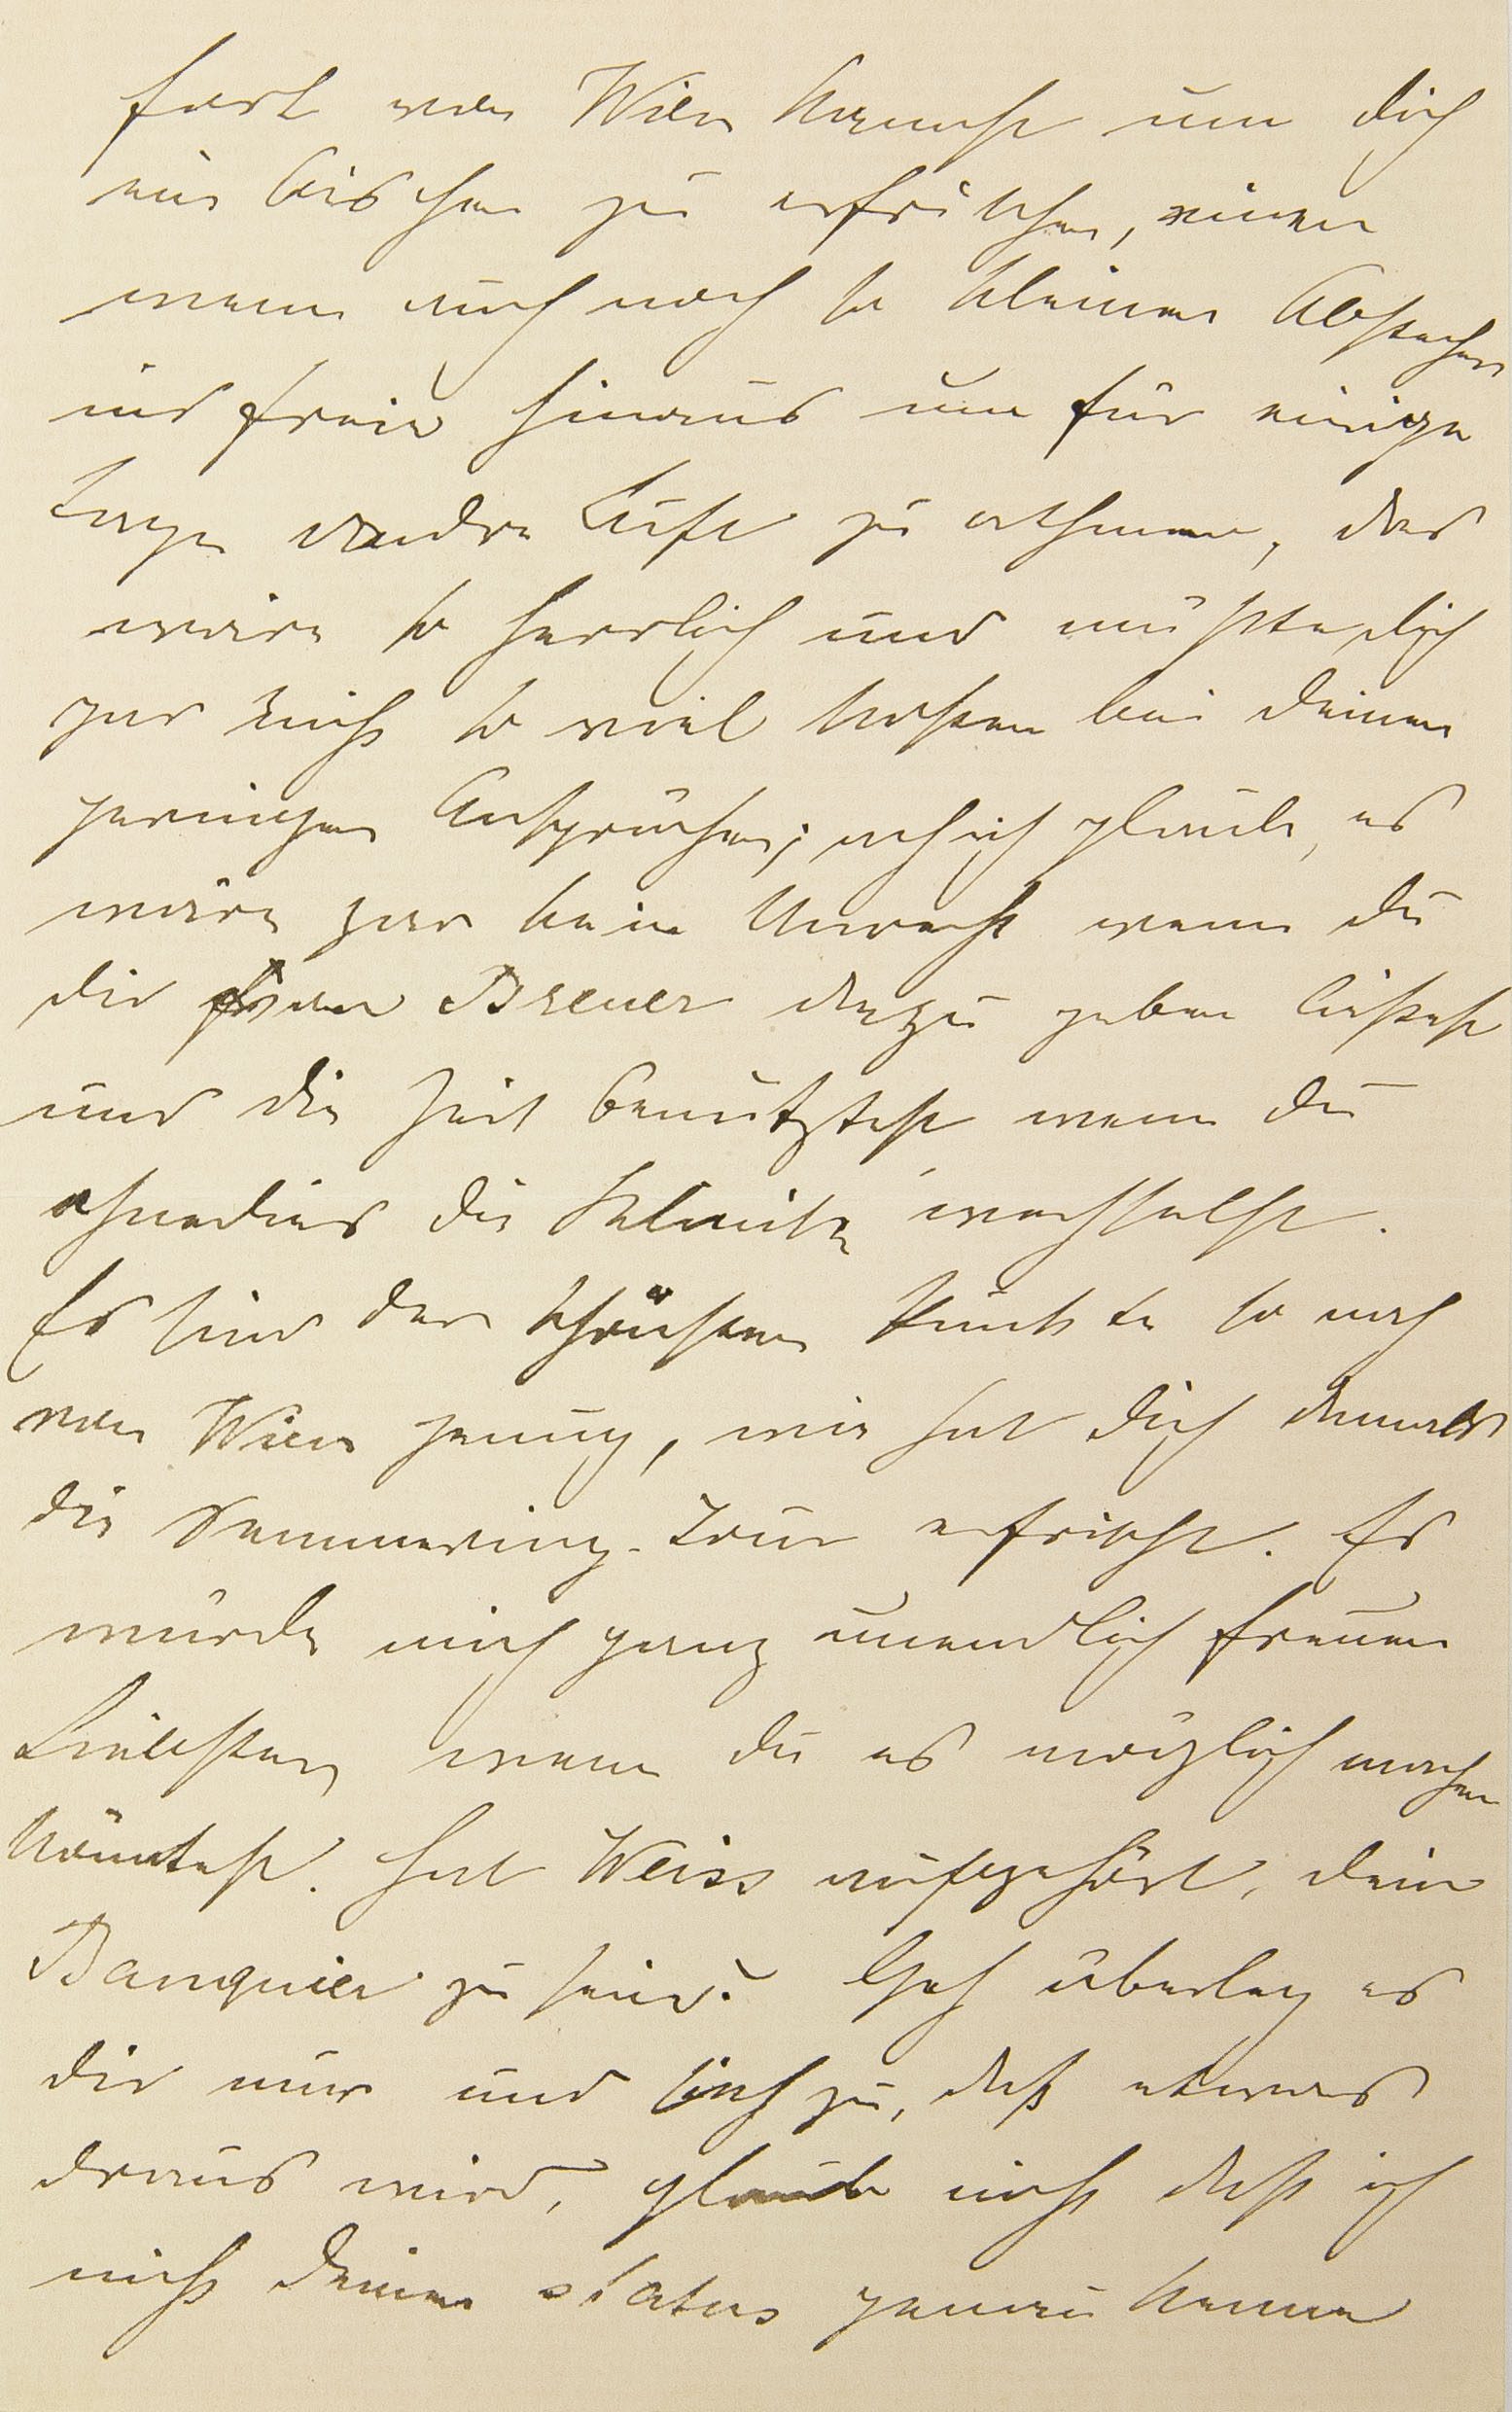 fort von Wien kannst um dich
ein bischen zu erfrischen, einen
wenn auch noch so kleinen Abstecher
ins freie hinaus um für einige
Tage andre Luft zu athmen, das
wäre so herrlich und müßte dich
gar nicht so viel kosten bei deinen
geringen Ansprüchen; ach ich glaube, es
wäre gar kein Unrecht wenn du
dir von Breuer dazu geben ließest
und die Zeit benütztest wenn du
ohnedies die Klinik wechselst.
Es sind der schönsten Punkte so nah
von Wien genug, wie hat dich damals
die Semmering-Tour erfrischt. Es
würde mich ganz unendlich freuen
Liebster, wenn du es möglich machen
könntest. Hat Weiss aufgehört, dein
Banquier zu sein? Geh überleg es
dir nur und sieh zu, daß etwas
draus wird, glaub nicht daß ich
nicht deinen status genau kenne